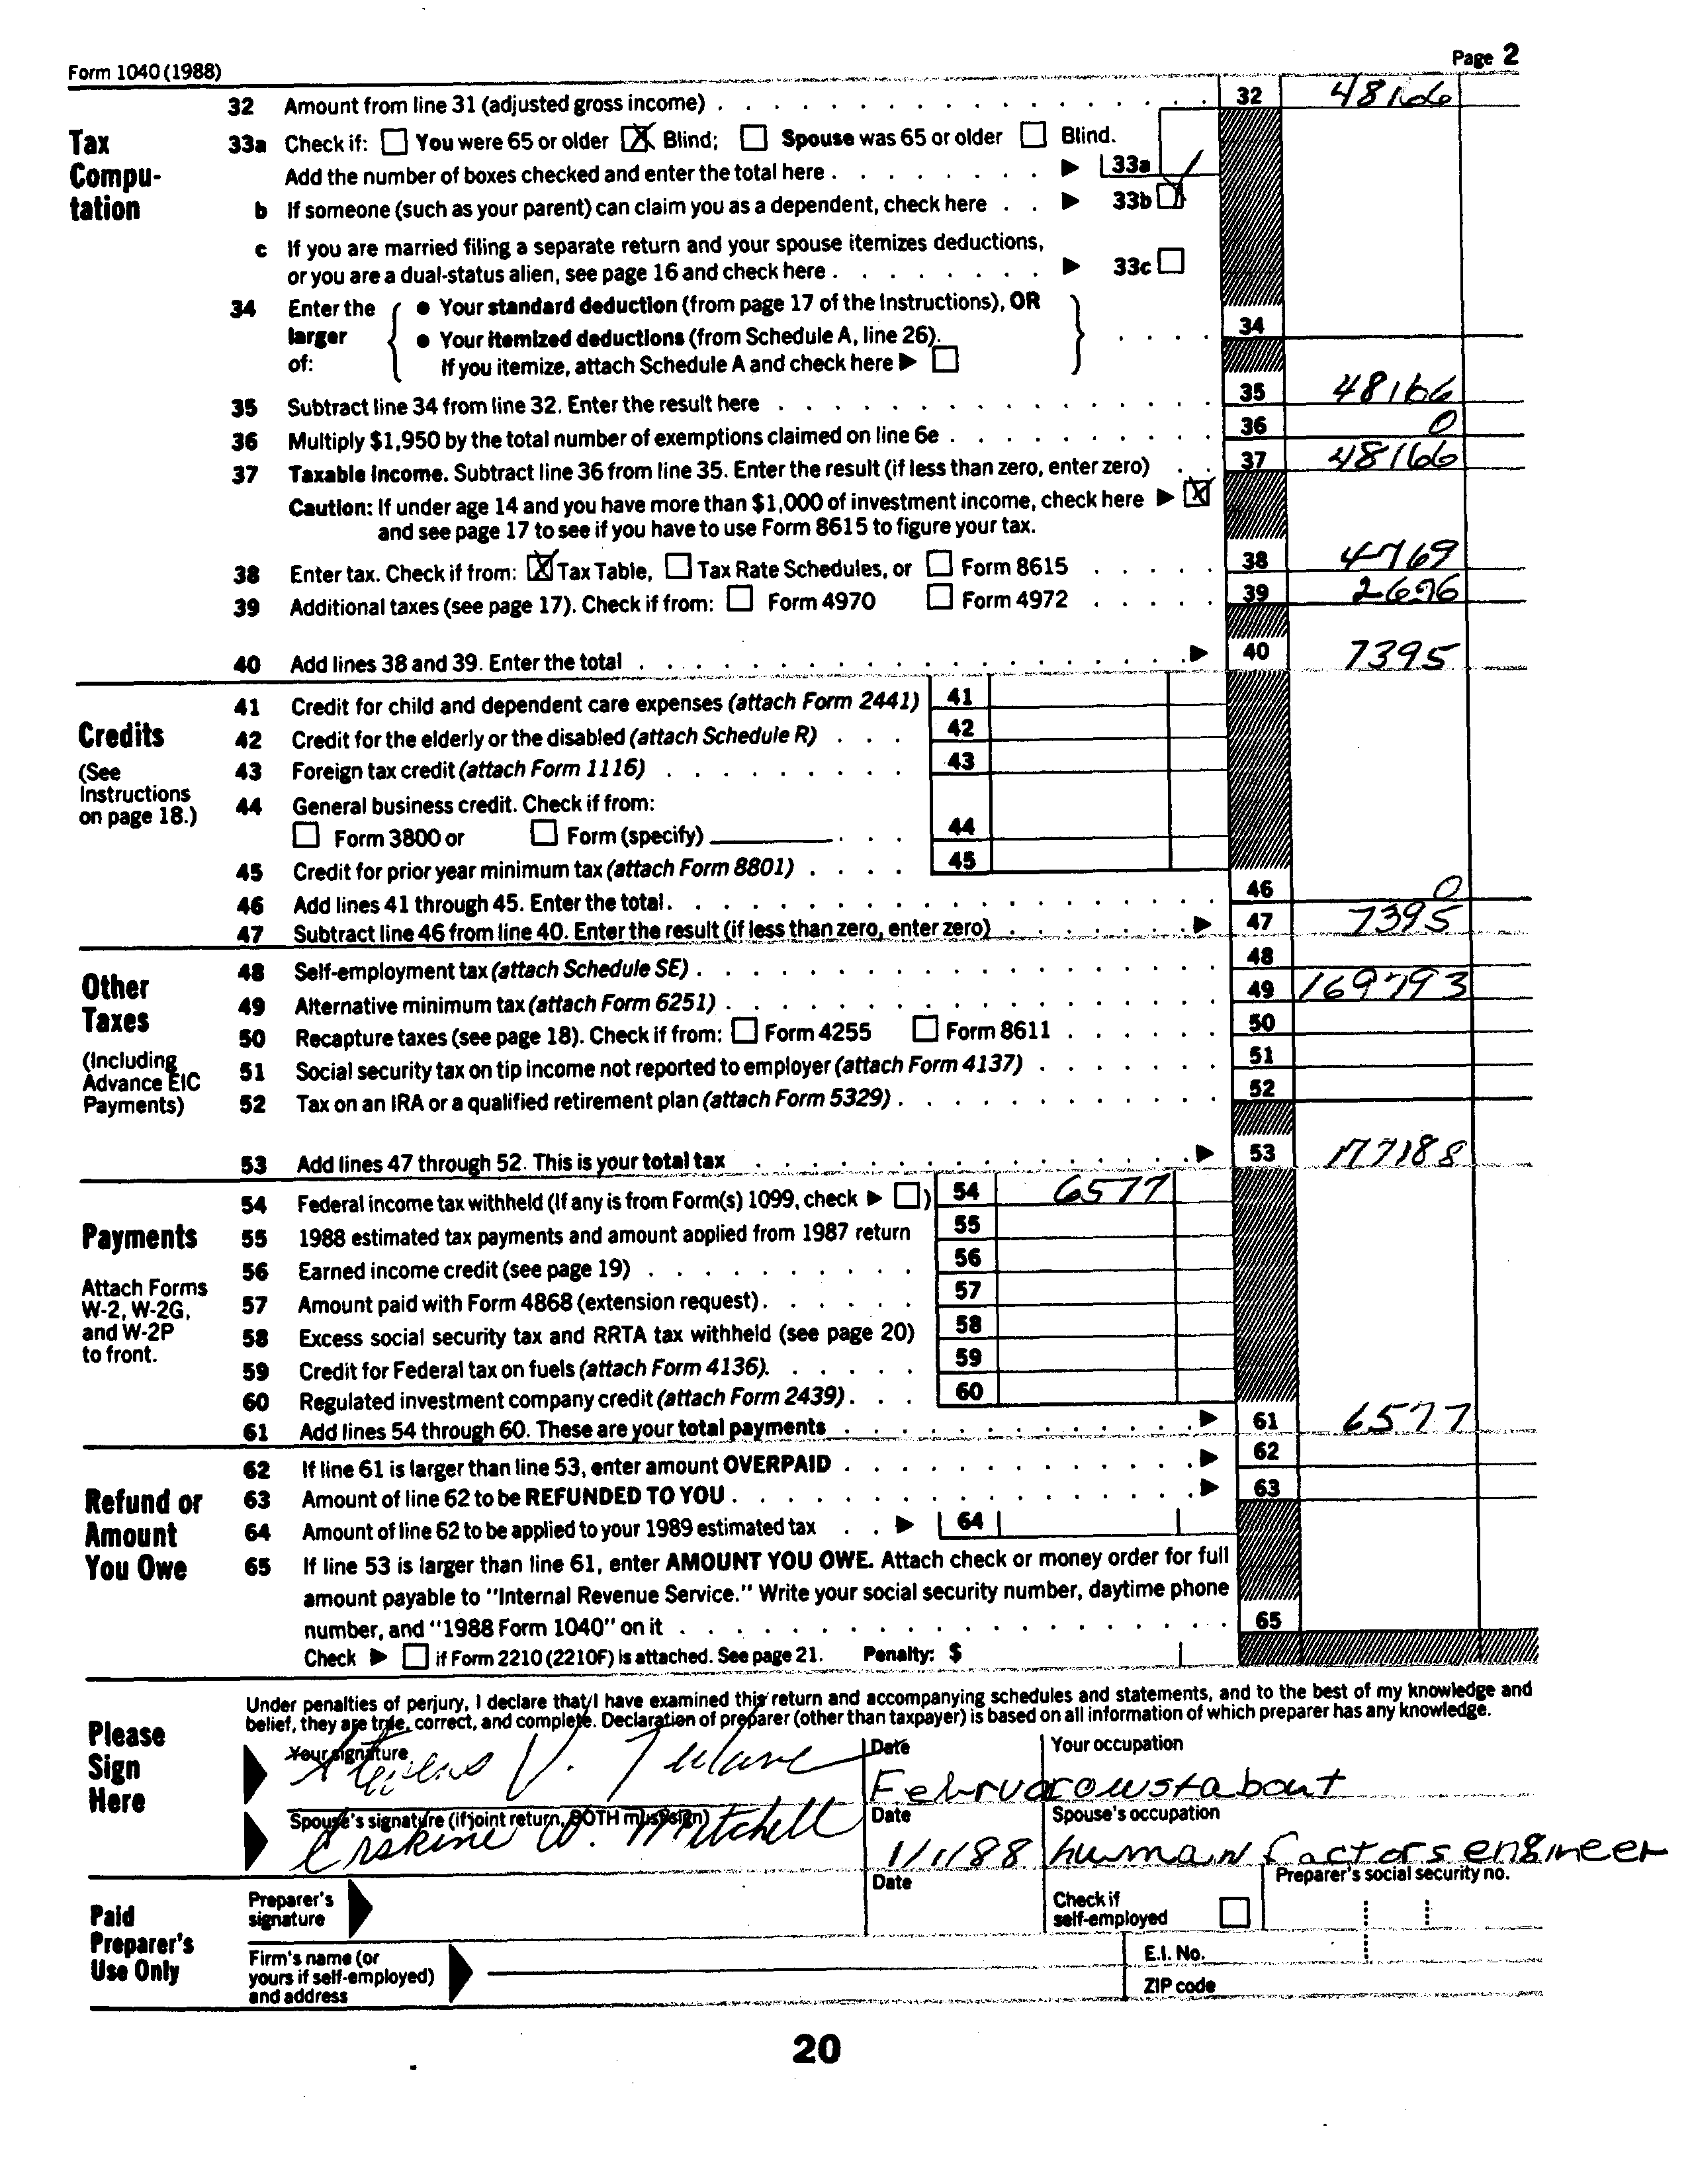 Form 1040 (1988) Page 2
Tax Compu-tation
32 Amount from line 31 (adjusted gross income) 32 48166
33a Check if: You were 65 or older X Blind; Spouse was 65 or older Blind.
Add the number of boxes checked and enter the total here 33a 1
b If someone (such as your parent) can claim you as a dependent, check here 33b
c If you are married filing a separate return and your spouse itemizes deductions,
or you are a dual-status alien, see page 16 and check here 33c
34 Enter the larger of:
● Your standard deduction (from page 17 of the Instructions), OR
● Your itemized deductions (from Schedule A, line 26). 34
If you itemize, attach Schedule A and check here
35 Subtract line 34 from line 32. Enter the result here 35 48166
36 Multiply $1,950 by the total number of exemptions claimed on line 6e 36 0
37 Taxable income. Subtract line 36 from line 35. Enter the result (if less than zero, enter zero) 37 48166
Caution: If under age 14 and you have more than $1,000 of investment income, check here X
and see page 17 to see if you have to use Form 8615 to figure your tax.
38 Enter tax. Check if from: X Tax Table, Tax Rate Schedules, or Form 8615 38 4769
39 Additional taxes (see page 17). Check if from: Form 4970 Form 4972 39
40 Add lines 38 and 39. Enter the total 40 7395
Credits
(See Instructions on page 18.)
41 Credit for child and dependent care expenses (attach Form 2441) 41
42 Credit for the elderly or the disabled (attach Schedule R) 42
43 Foreign tax credit (attach Form 1116) 43
44 General business credit. Check if from:
Form 3800 or Form (specify) 44
45 Credit for prior year minimum tax (attach Form 8801) 45
46 Add lines 41 through 45. Enter the total 46 0
47 Subtract line 46 from line 40. Enter the result (if less than zero, enter zero) 47 7395
Other Taxes
(Including Advance EIC Payments)
48 Self-employment tax (attach Schedule SE) 48
49 Alternative minimum tax (attach Form 6251) 49 169793
50 Recapture taxes (see page 18). Check if from: Form 4255 Form 8611 50
51 Social security tax on tip income not reported to employer (attach Form 4137) 51
52 Tax on an IRA or a qualified retirement plan (attach Form 5329) 52
53 Add lines 47 through 52. This is your total tax 53 177188
Payments
Attach Forms W-2, W-2G, and W-2P to front.
54 Federal income tax withheld (If any is from Form(s) 1099, check ) 54 6577
55 1988 estimated tax payments and amount applied from 1987 return 55
56 Earned income credit (see page 19) 56
57 Amount paid with Form 4868 (extension request) 57
58 Excess social security tax and RRTA tax withheld (see page 20) 58
59 Credit for Federal tax on fuels (attach Form 4136). 59
60 Regulated investment company credit (attach Form 2439) 60
61 Add lines 54 through 60. These are your total payments 61 6577
Refund or Amount You Owe
62 If line 61 is larger than line 53, enter amount OVERPAID 62
63 Amount of line 62 to be REFUNDED TO YOU 63
64 Amount of line 62 to be applied to your 1989 estimated tax 64
65 If line 53 is larger than line 61, enter AMOUNT YOU OWE. Attach check or money order for full
amount payable to "Internal Revenue Service." Write your social security number, daytime phone
number, and "1988 Form 1040" on it 65
Check if Form 2210 (2210F) is attached. See page 21. Penalty: $
Please Sign Here
Under penalties of perjury, I declare that I have examined this return and accompanying schedules and statements, and to the best of my knowledge and
belief, they are true, correct, and complete. Declaration of preparer (other than taxpayer) is based on all information of which preparer has any knowledge.
Your signature Date Your occupation
V. roustabout
Spouse's signature (if joint return, BOTH must sign) Date Spouse's occupation
Erskine W. Mitchell 1/1/88 human factors engineer
Paid Preparer's Use Only
Preparer's signature Date Check if self-employed Preparer's social security no.
Firm's name (or yours if self-employed) and address E.I. No.
ZIP code
20